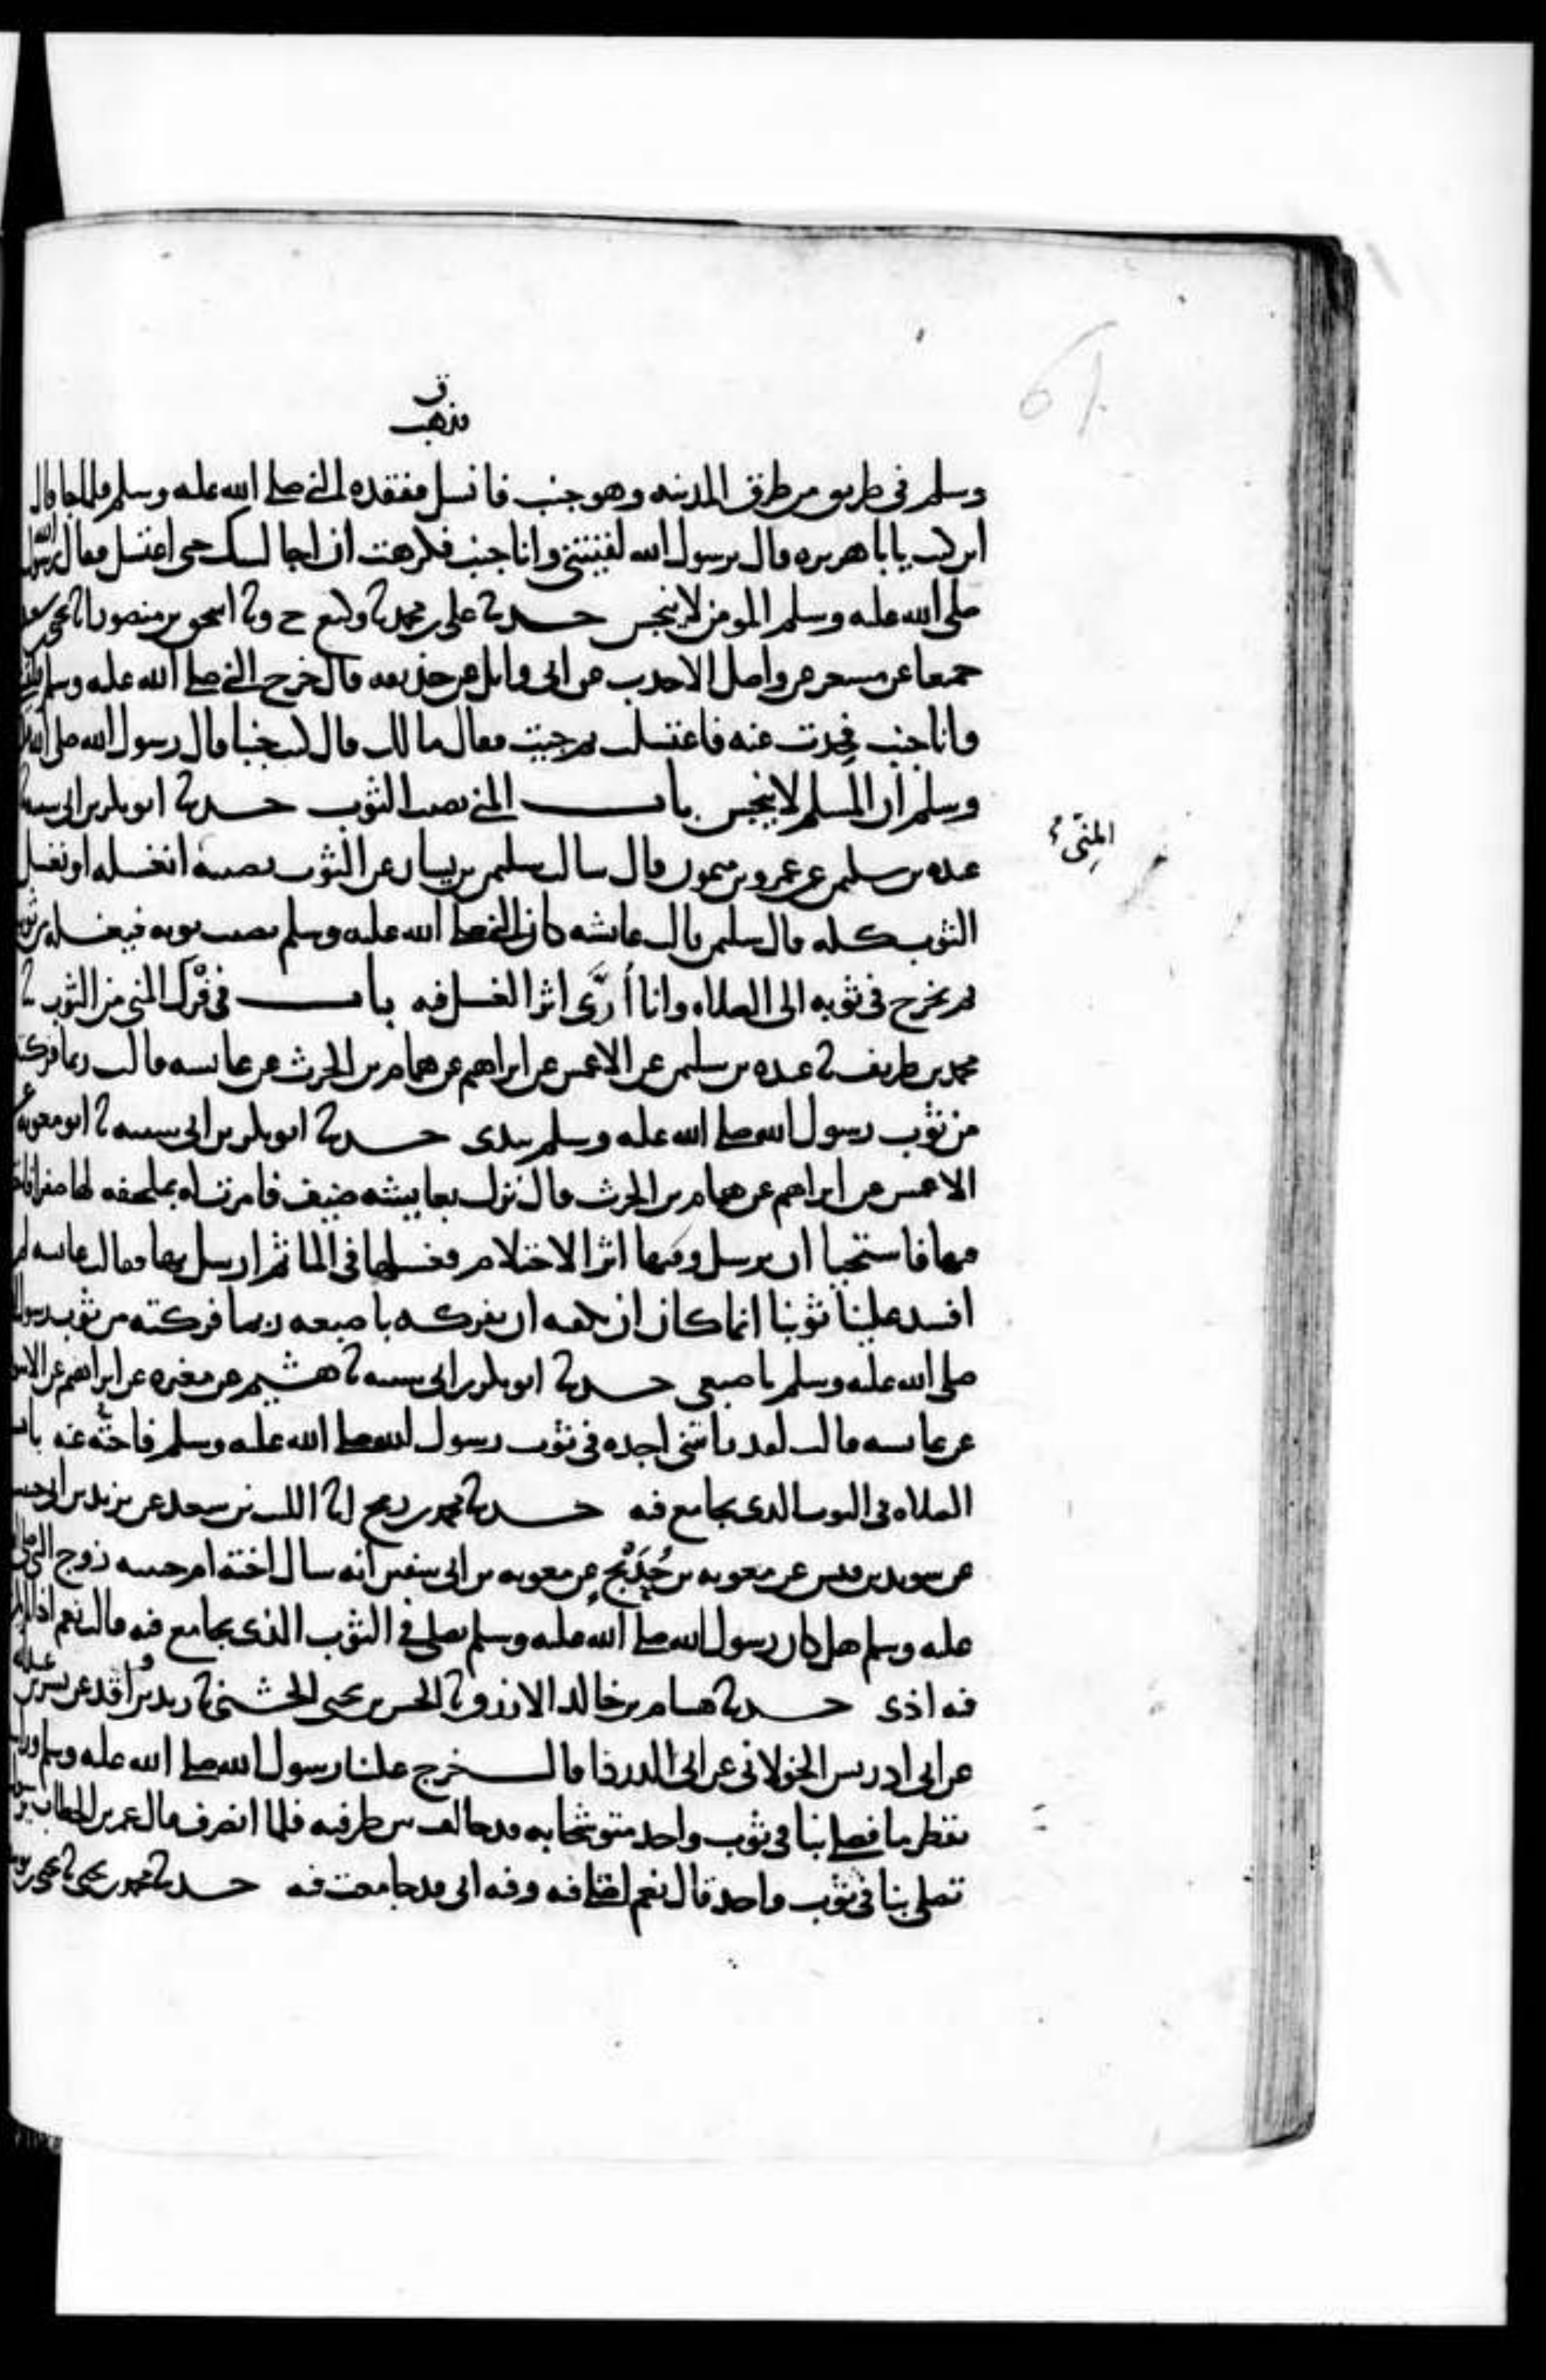 ق
فذهب
وسلم في طريق من طرق المدينه وهو جنب فانسل ففقده النبي صلى الله عليه وسلم فلما جا قال
اين كنت يابا هريره قال يرسول الله لقيتني وانا جنب فكرهت ان اجالسك حتى اغتسل فقال رسول الله
صلى الله عليه وسلم المومن لا ينجس حدثنا علي بن محمد نا وكيع ح ونا اسحق بن منصور انا يحيى بن سعيد
جميعا عن مسعر عن واصل الاحدب عن ابي وايل عن حذيفه قال خرج النبي صلى الله عليه وسلم فلقيني
وانا جنب فحدت عنه فاغتسلت ثم جيت فقال مالك قال كنت جنبا قال رسول الله صلى الله عليه
وسلم ان المسلم لا ينجس باب المني يصيب الثوب حدثنا ابو بكر بن ابي شيبه نا
عبده بن سليمن عن عمرو بن ميمون قال سالت سليمن بن يسار عن الثوب يصيبه انغسله او نغسل
الثوب كله قال سليمن قالت عايشه كان النبي صلى الله عليه وسلم يصيب ثوبه فيغسله من ثوبه
ثم يخرج في ثوبه الى الصلاه وانا أرَى اثر الغسل فيه باب في فَرْك المني من الثوب نا
محمد بن طريف نا عبده بن سليمن عن الاعمش عن ابراهيم عن همام بن الحرث عن عايشه قالت ربما فركته
من ثوب رسول الله صلى الله عليه وسلم بيدي حدثنا ابو بكر بن ابي شيبه نا ابو معويه عن
الاعمش عن ابراهيم عن همام بن الحرث قال نزل بعايشه ضيف فامرت له بملحفه لها صفرا فاحتلم
فيها فاستحيا ان يرسل وفيها اثر الاحتلام فغسلها في الما ثم ارسل بها فقالت عايشه لم
افسد علينا ثوبنا انما كان ان يكفيه ان يفركه باصبعه ربما فركته من ثوب رسول الله
صلى الله عليه وسلم باصبعي حدثنا ابو بكر بن ابي شيبه نا هشيم عن مغيره عن ابراهيم عن الاسود
عن عايشه قالت لقد رايتني اجده في ثوب رسول الله صلى الله عليه وسلم فاحته عنه باب
الصلاه في الثوب الذي يجامع فيه حدثنا محمد بن رمح انا الليث بن سعد عن يزيد بن ابي حبيب
عن سويد بن قيس عن معويه بن حُدَيْج عن معويه بن ابي سفين انه سال اخته ام حبيبه زوج النبي صلى الله
عليه وسلم هل كان رسول الله صلى الله عليه وسلم يصلي في الثوب الذي يجامع فيه قالت نعم اذا لم يكن
فيه اذى حدثنا هشام بن خالد الازرق نا الحسن بن يحيى الخشني نا زيد بن واقد عن بسر بن عبيد الله
عن ابي ادريس الخولاني عن ابي الدردا قال خرج علينا رسول الله صلى الله عليه وسلم وراسه
يقطر ما فصلى بنا في ثوب واحد متوشحا به قد خالف بين طرفيه فلما انصرف قال عمر بن الخطاب يرسول الله
تصلي بنا في ثوب واحد قال نعم اصلي فيه وفيه اي قد جامعت فيه حدثنا محمد بن يحيى نا يحيى بن يوسف
المني